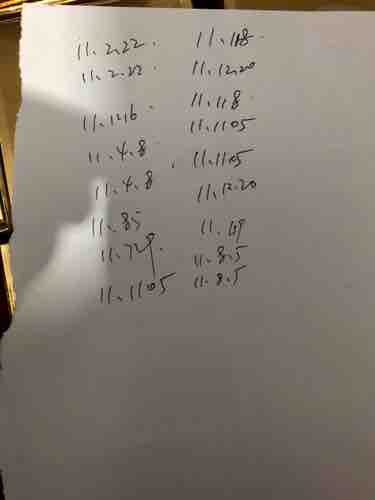 11.2.22. 11.118.
11.2.22 11.12.20
11.1216. 11.118.
11.1105
11.4.8. 11.1105
11.4.8 11.12.20
11.85 11.49
11.729. 11.8.5
11.1105 11.8.5